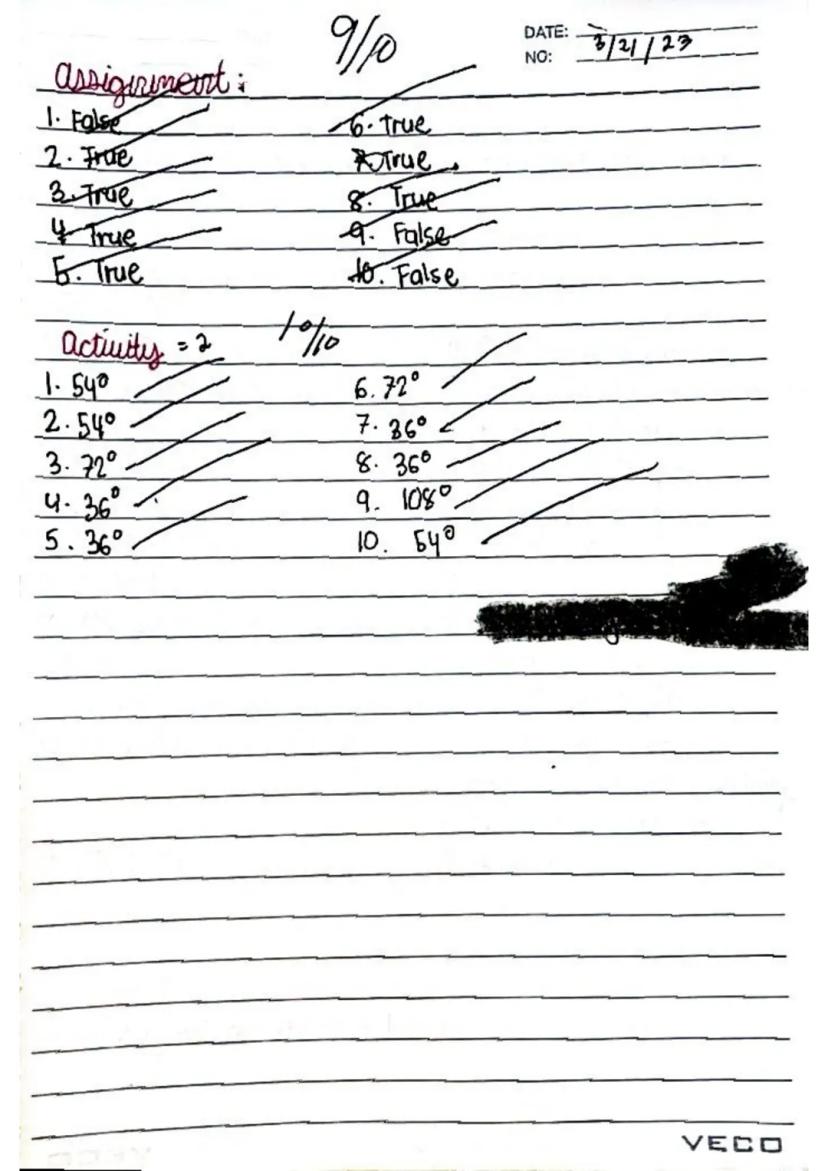 9/10
DATE: 3/21/23
NO:
Assignment:
1. False
2. True
3. True
4. True
5. True
6. True
7. True
8. True
9. False
10. False
Activity = 2
10/10
1. 54°
2. 54°
3. 72°
4. 36°
5. 36°
6. 72°
7. 36°
8. 36°
9. 108°
10. 54°
VECO